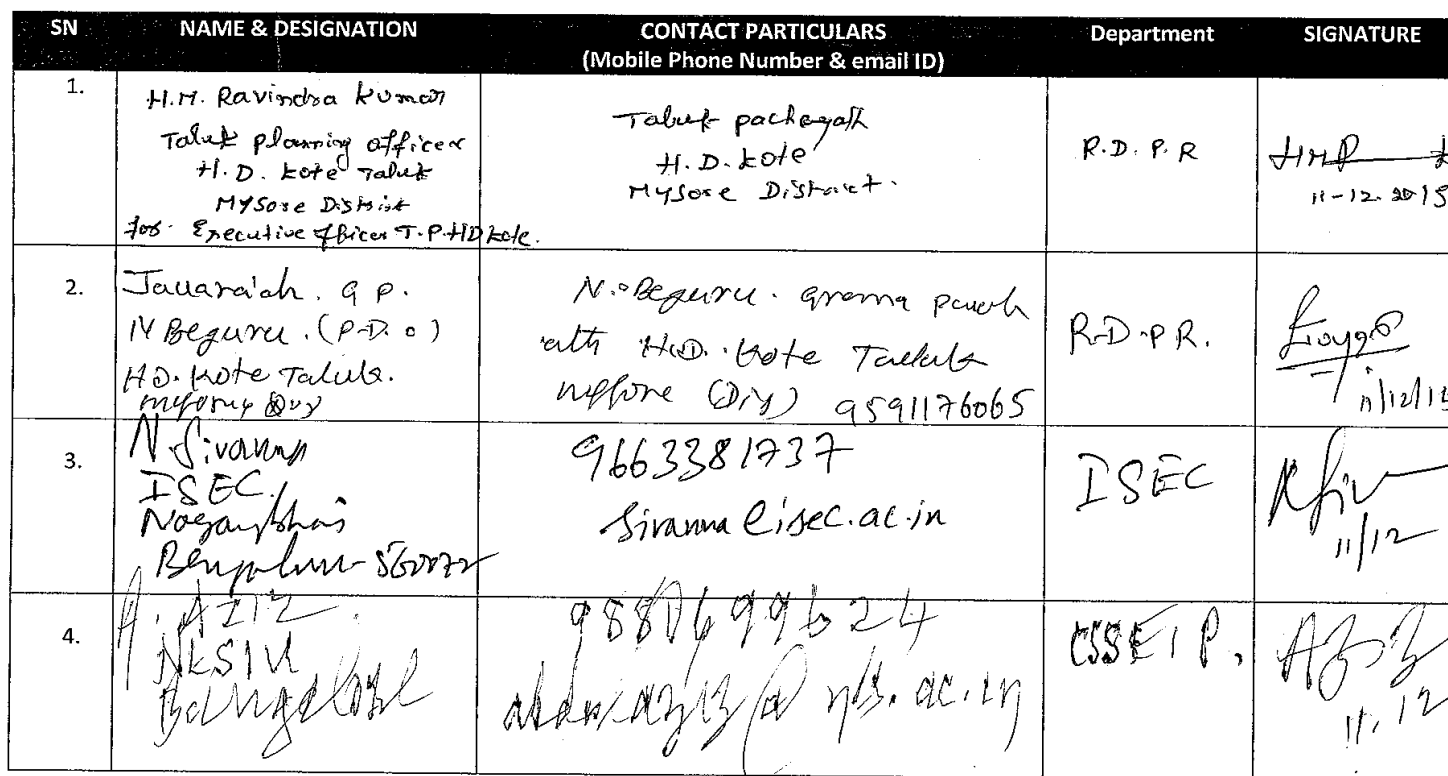 SN NAME & DESIGNATION CONTACT PARTICULARS Department SIGNATURE
(Mobile Phone Number & email ID)
1.
H.M. Ravindra Kumar
Taluk planning officer
H.D. Kote Taluk
Mysore District
for Executive officer T.P. HD Kote.
Taluk pachayath
H.D. Kote
Mysore District.
R.D.P.R
11-12-2015
2.
Javaraiah. G P.
N Beguru. (P.D.O)
HD. Kote Taluk.
N. Beguru. grama panch
ath H.D. Kote Taluk
9591176065
R.D.P.R.
11/12/15
3.
N. Sivanna
ISEC.
Bengaluru-560072
9663381737
Sivanna@isec.ac.in
ISEC
11/12
4.
A. AZIZ
NLSIU
Bangalore
@nls.ac.in
CSSEIP.
11.12